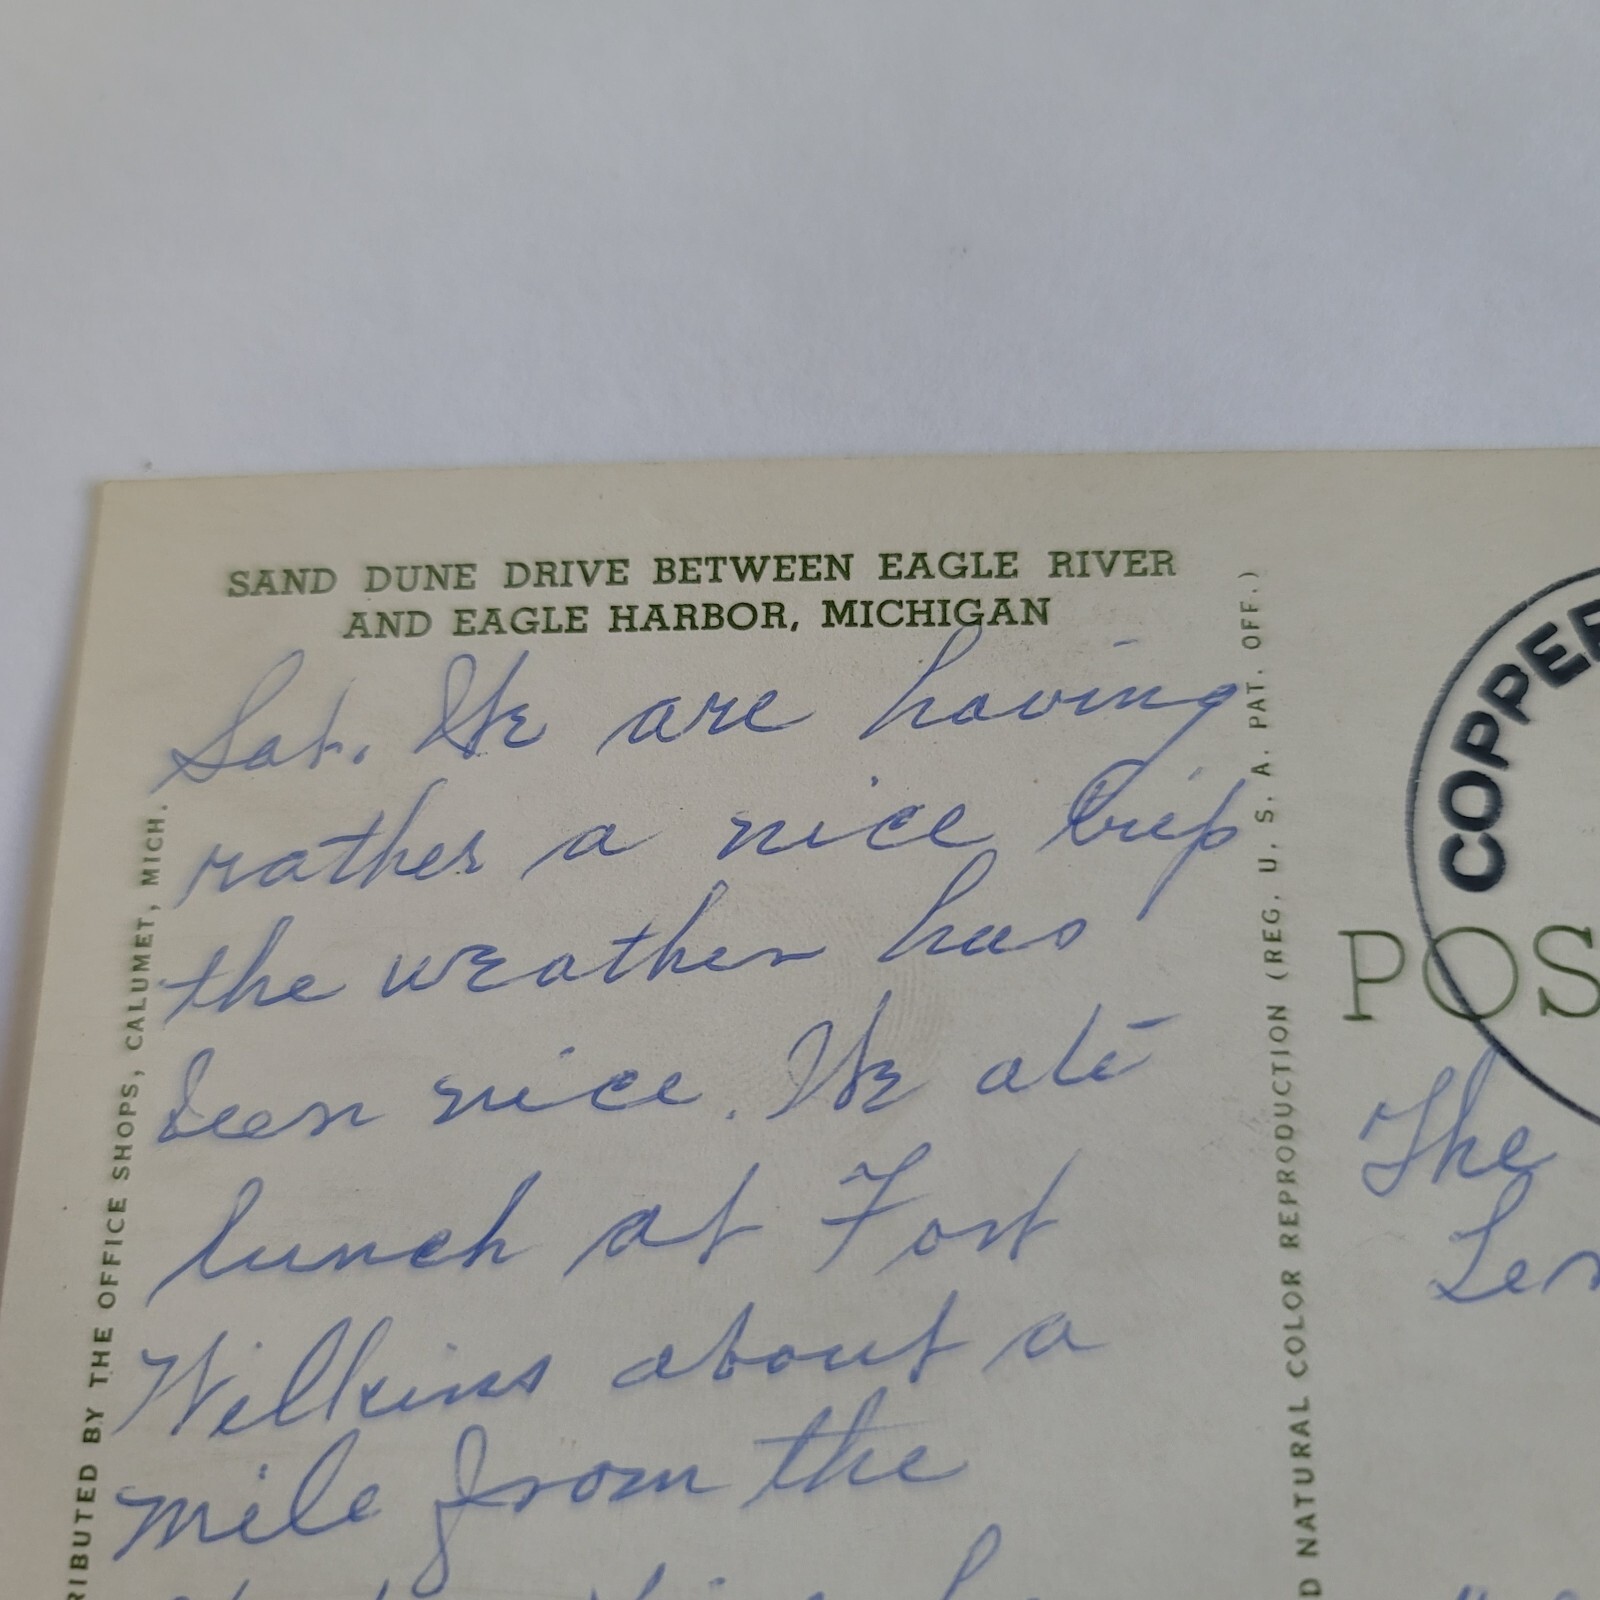 SAND DUNE DRIVE BETWEEN EAGLE RIVER
AND EAGLE HARBOR, MICHIGAN
Sat. We are having
rather a nice trip
the weather has
been nice. We ate
lunch at Fort
Wilkins about a
mile from the
RIBUTED BY THE OFFICE SHOPS, CALUMET, MICH.
D NATURAL COLOR REPRODUCTION (REG. U. S. A. PAT. OFF.)
COPPER
POS
The
Len